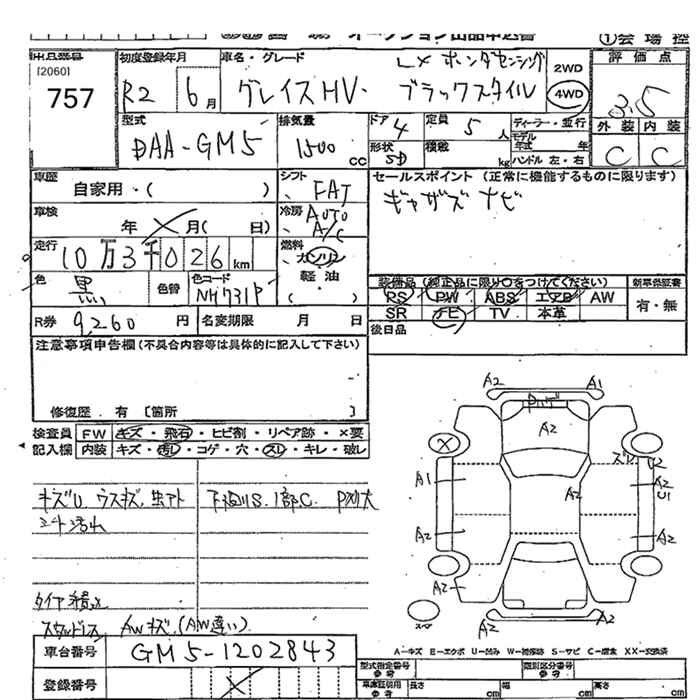 ①会場控
出品番号
[2060]
757
初度登録年月
R2 6月
車名・グレード
LX ホンダセンシング
グレイスHV・ブラックスタイル
2WD
4WD
評価点
3.5
外装 内装
C C
型式
DAA-GM5
排気量
1500 cc
ドア 4
形状 SD
定員 5人
積載 kg
ディーラー・並行
モデル年式 年
ハンドル 左・右
車歴 自家用・( )
シフト FAT
セールスポイント (正常に機能するものに限ります)
ナビ
車検 年 月( 日)
冷房 AUTO A/C
走行 10万3千026km
燃料 ガソリン
軽油
( )
色 黒
色替
色コード NH731P
装備品 (純正品に限り○をつけてください)
新車保証書
PS PW ABS エアB AW
SR ナビ TV 本革
有・無
R券 9,260円
名変期限 月 日
後日品
注意事項申告欄(不具合内容等は具体的に記入して下さい)
修復歴 . 有 〔箇所 〕
検査員 FW キズ・飛石・ヒビ割・リペア跡・×要
記入欄 内装 キズ・汚レ・コゲ・穴・スレ・キレ・破レ
下廻りS.1部C.
スタッドレス AWキズ.(AW違い)
A2 A1
A2
ズレ U2
A1 A2 A2 U1
A2 A2
A2
スペア A2 A2
A-キズ E-エクボ U-凹み W-補修跡 S-サビ C-腐食 XX-交換済
車台番号 GM5-1202843
登録番号
型式指定番号 参考
類別区分番号 参考
車庫証明用 参考 長さ cm 幅 cm 高さ cm